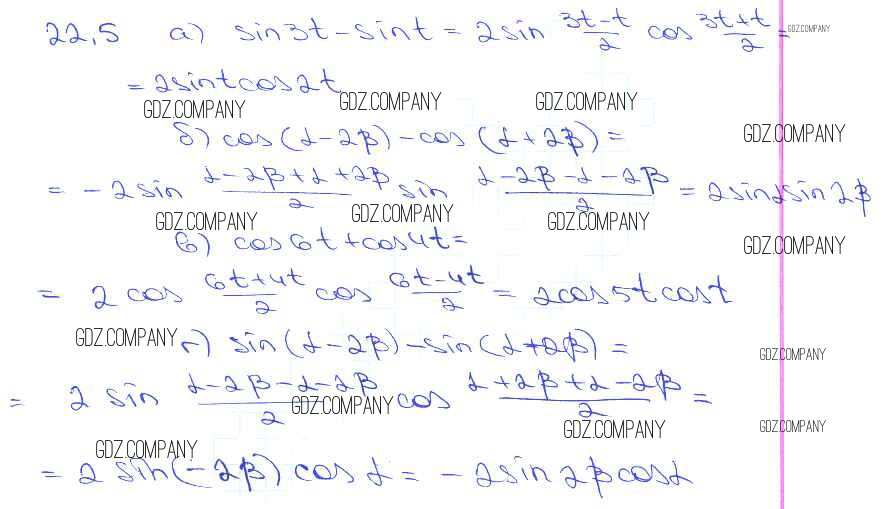 22,5 а) sin3t - sint = 2sin (3t-t)/2 cos (3t+t)/2 = GDZ.COMPANY
= 2sintcos2t
GDZ.COMPANY GDZ.COMPANY GDZ.COMPANY
б) cos(α-2β) - cos(α+2β) = GDZ.COMPANY
= -2sin (α-2β+α+2β)/2 sin (α-2β-α-2β)/2 = 2sinαsin2β
GDZ.COMPANY GDZ.COMPANY GDZ.COMPANY
в) cos6t + cos4t = GDZ.COMPANY
= 2cos (6t+4t)/2 cos (6t-4t)/2 = 2cos5tcost
GDZ.COMPANY г) sin(α-2β) - sin(α+2β) = GDZ.COMPANY
= 2 sin (α-2β-α-2β)/2 cos (α+2β+α-2β)/2 =
GDZ.COMPANY GDZ.COMPANY GDZ.COMPANY
GDZ.COMPANY
= 2 sin(-2β) cosα = -2sin2βcosα